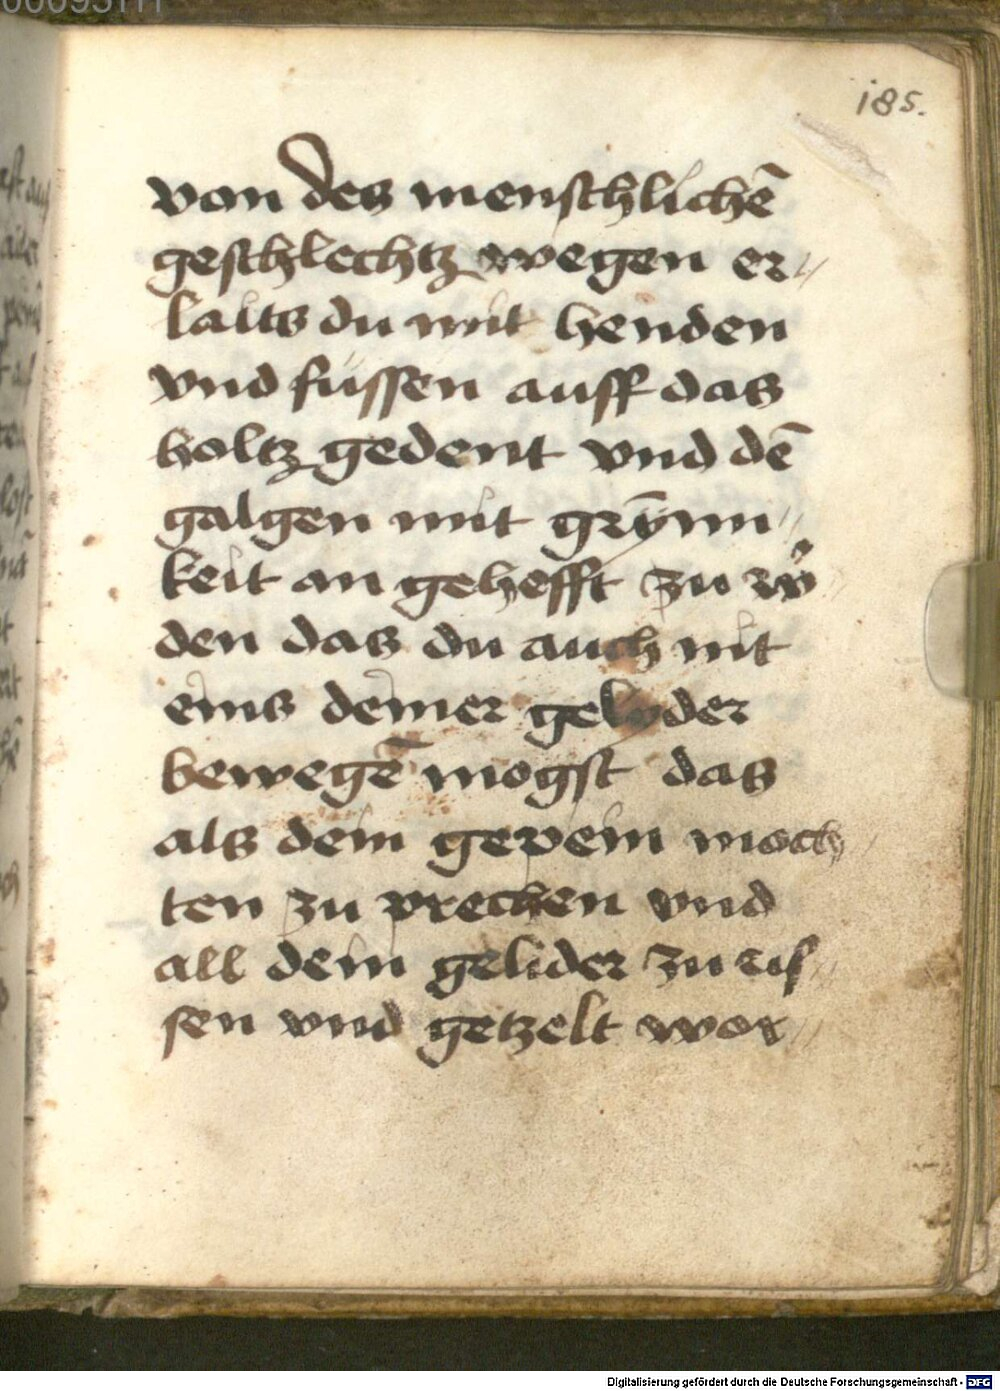 185.
von des menschlichē
geschlechtz wegen er⸗
laits du mit henden
vnd füssen auff das
holtz gedent vnd dē
galgen mit grȳnn⸗
keit an gehefft zu
den das du auch nit
eins deiner gelyder
bewegē mogst das
als dein gepein moch⸗
ten zu prechen vnd
all dein gelider zu ris⸗
sen vnd getzelt wor⸗
Digitalisierung gefördert durch die Deutsche Forschungsgemeinschaft - DFG